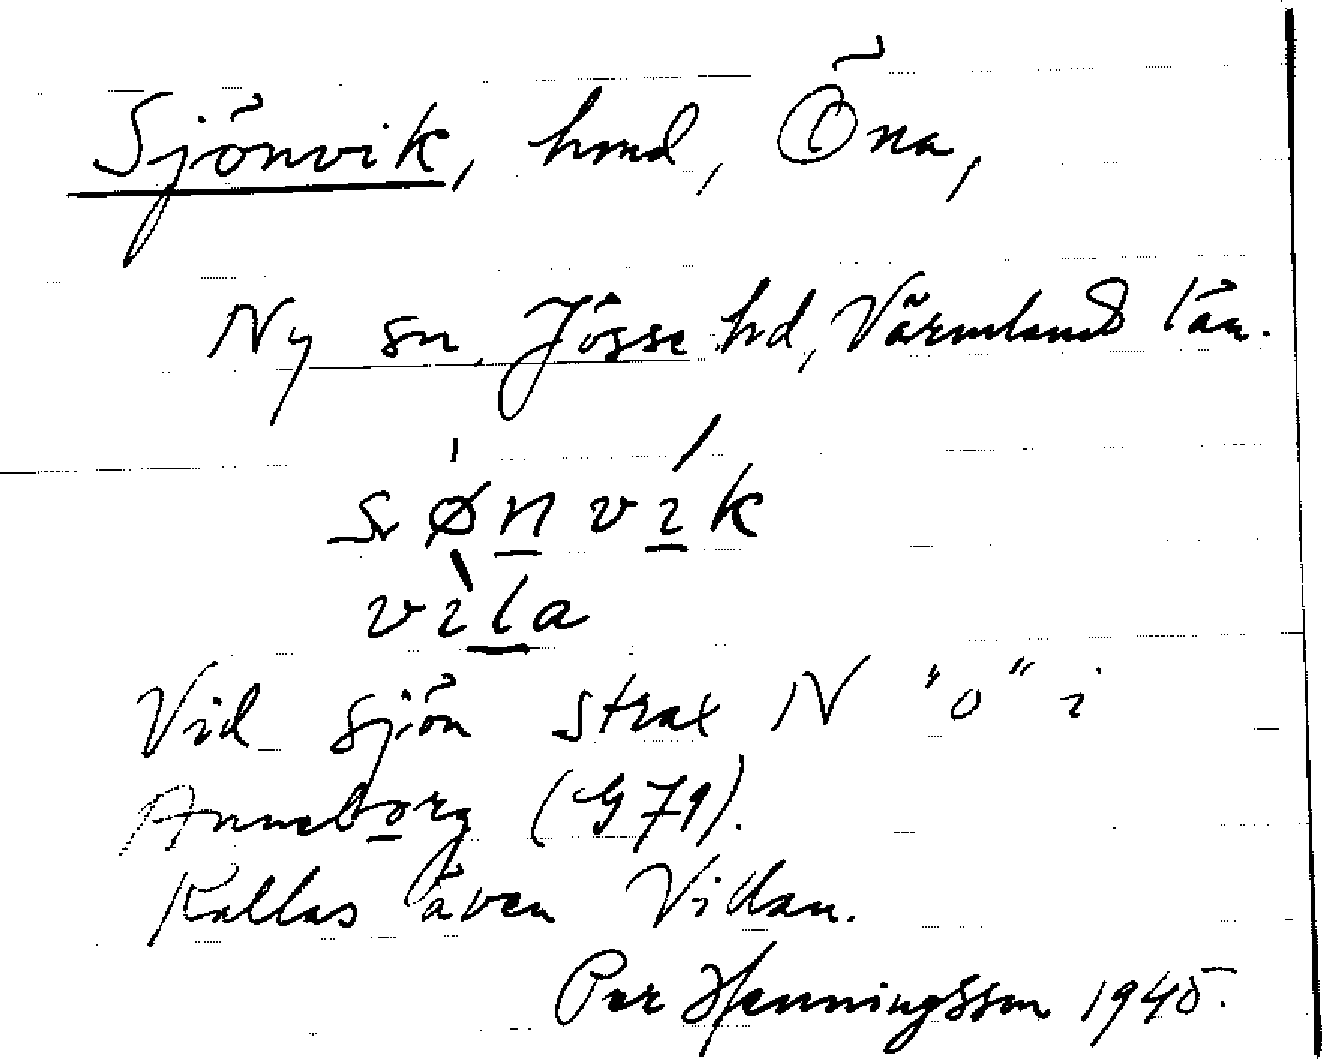 Sjönvik, hmd, Öna,
Ny sn, Jösse hd, Värmlands län.
sønvik
vila
Vid sjön strax N "o" i
Anneborg (G 79).
Kallas även Villan.
Per Henningsson 1945.